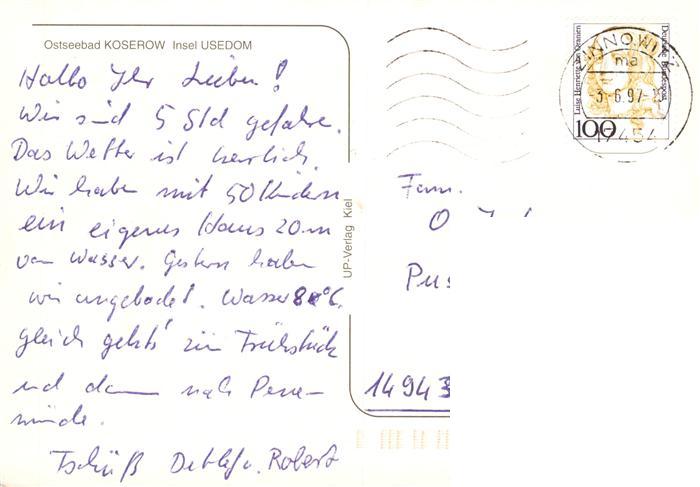 Ostseebad KOSEROW Insel USEDOM
Hallo Ihr Lieben!
Wir sind 5 Std gefahre.
Das Wetter ist herrlich.
Wir haben mit 50 Kindern
ein eigenes Haus 20 m
vom Wasser. Gestern haben
wir angebadet. Wasser °C.
gleich gehts zum Frühstück
und dann nach Peene-
münde.
Tschüß Detlef u. Robert
UP-Verlag Kiel
Luise Henriette von Oranien
Deutsche Bundespost
100
ZINNOWITZ
ma
-3.-6.97-
17454
Fam.
14943